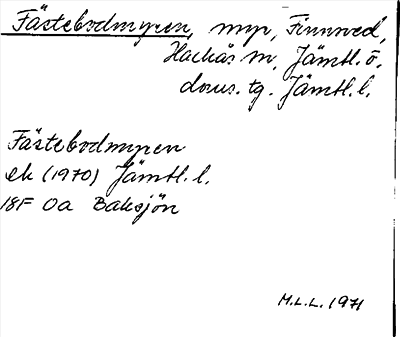 Fästebodmyren, myr, Finnved,
Hackås sn, Jämtl. ö.
doms. tg. Jämtl. l.
Fästebodmyren
ek (1970) Jämtl. l.
18F 0a Baksjön
M.L.L. 1971